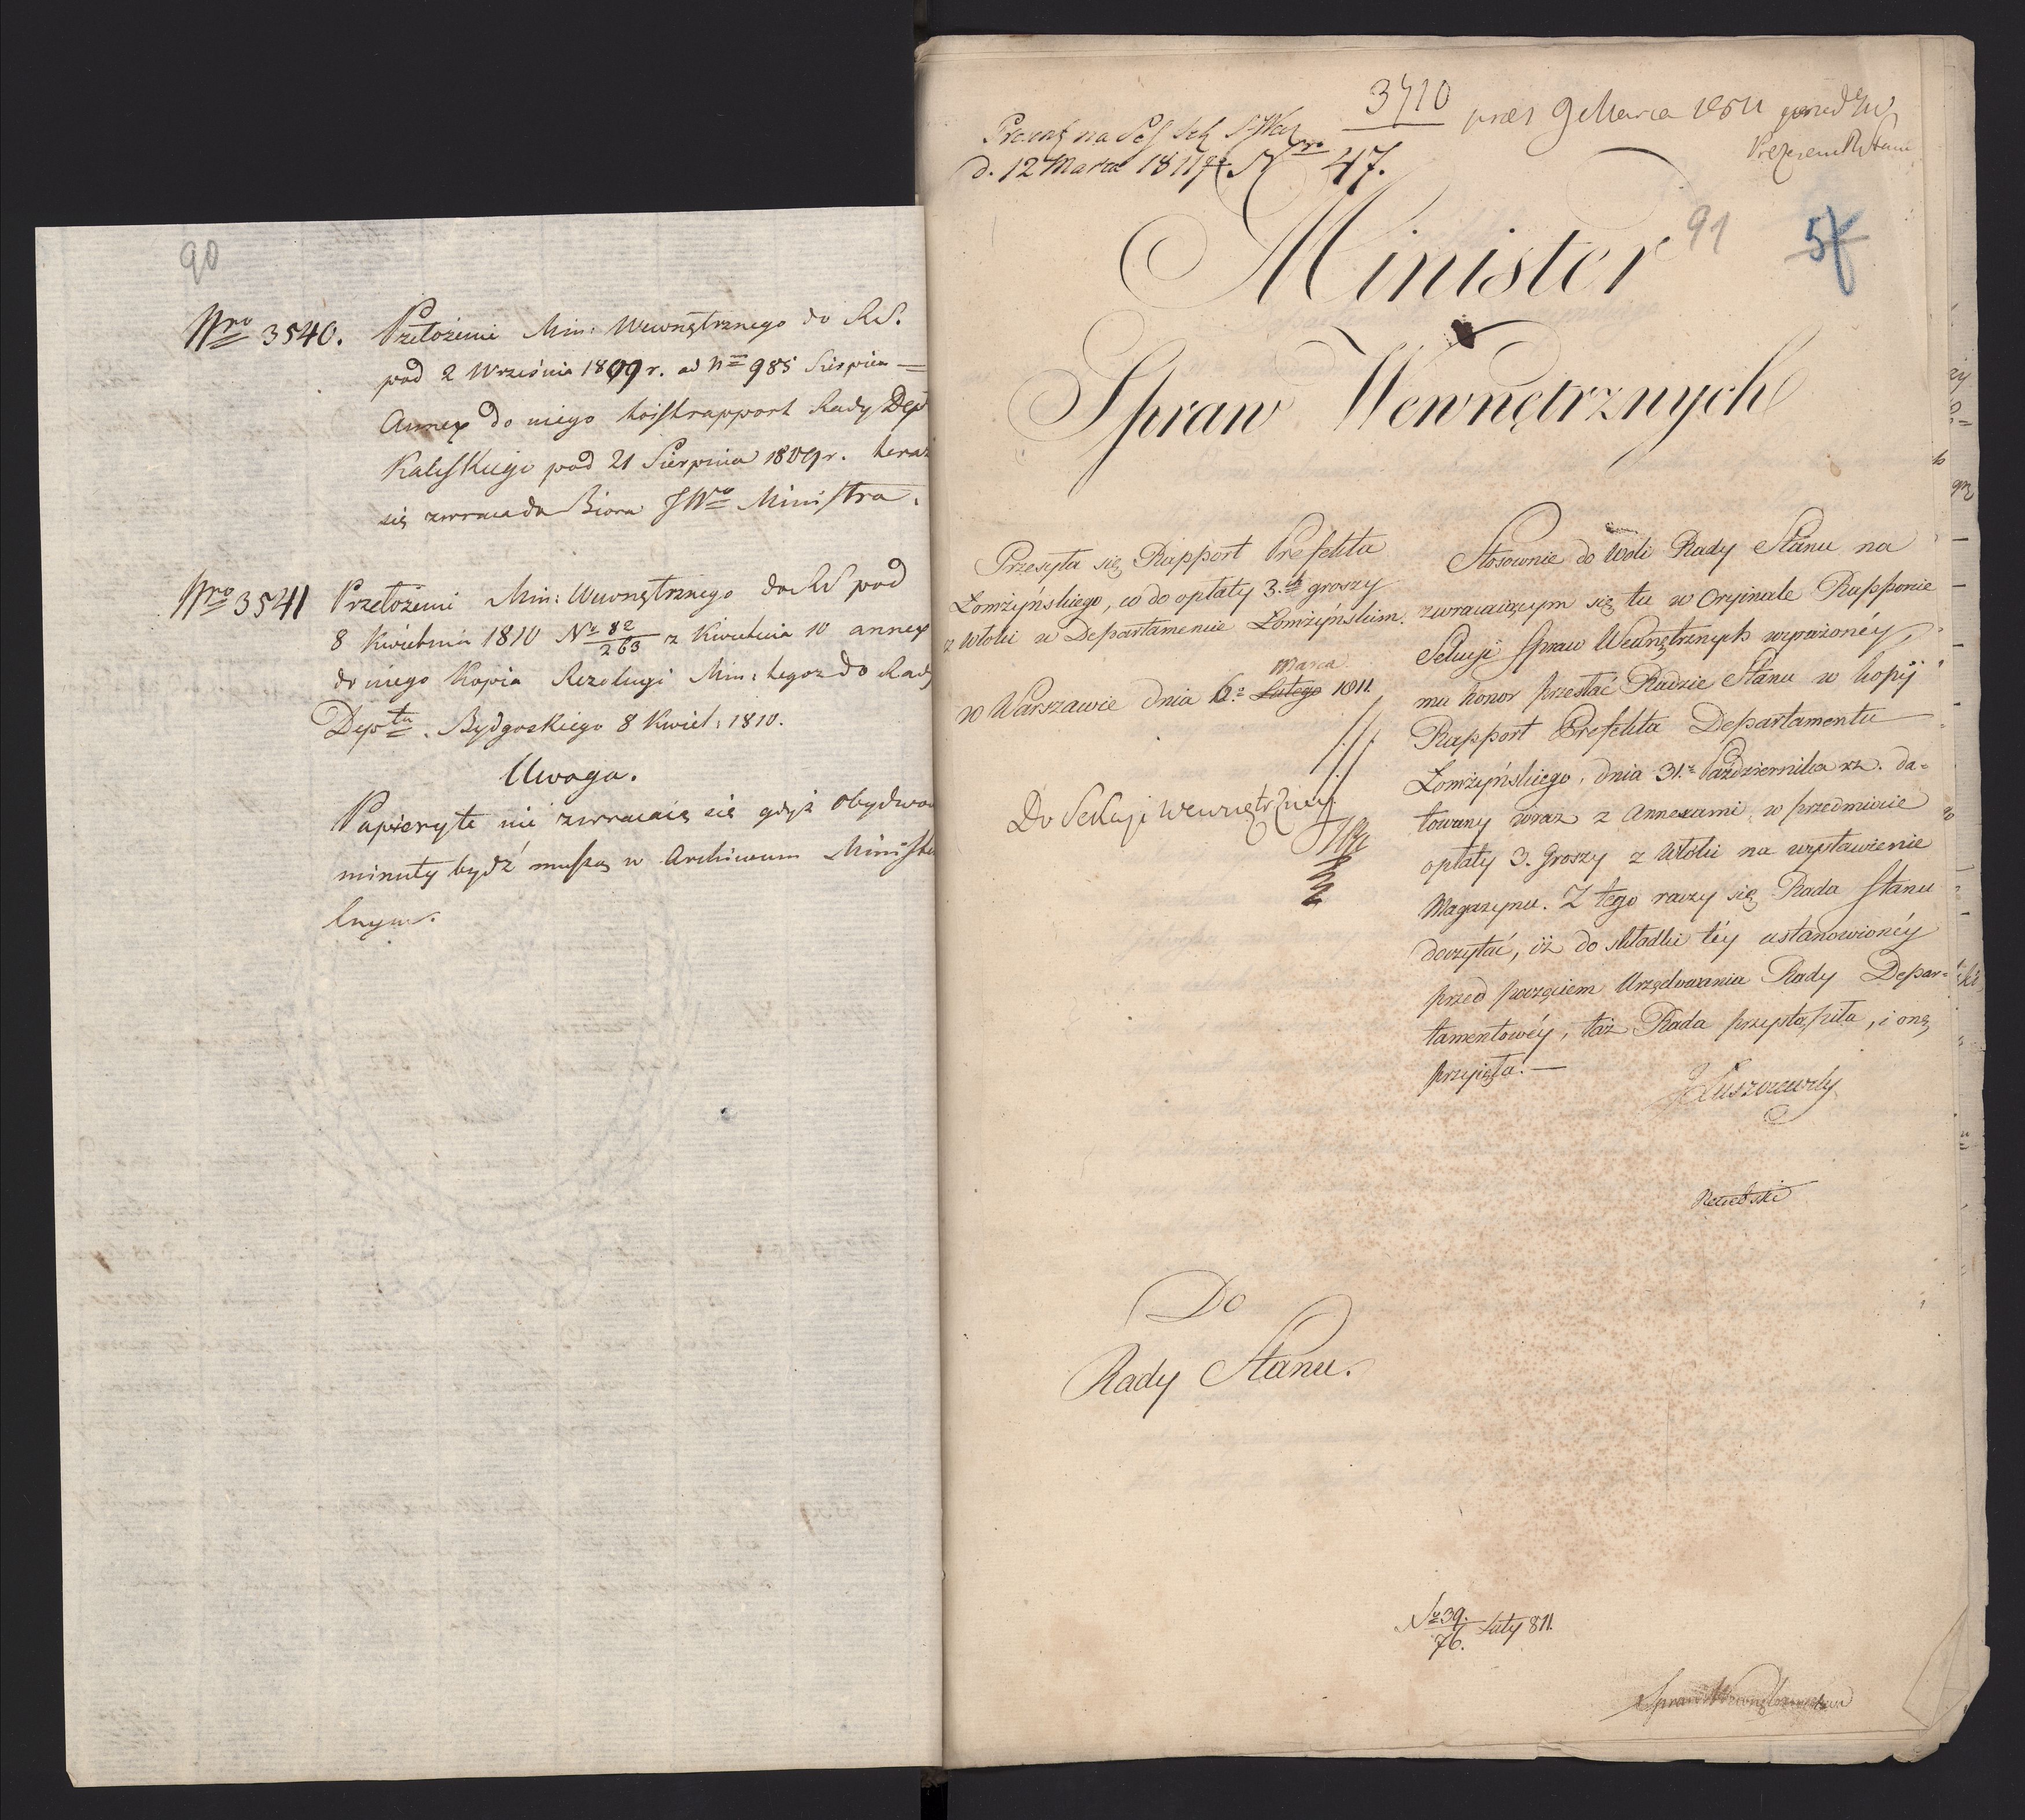 90
Nro 3540. Przełożenie Min: Wewnętrznego do RS.
pod 2 Września 1809 r. ad Nm 985 Sierpień =
Annex do niego toiest rapport Rady Dept
Kaliskiego pod 21 Sierpnia 1809r. teraz
się zwraca do Biora JWo Ministra.
Nro 3541 Przełożenie Min: Wewnętrznego do RS pod
8 Kwietnia 1810 No 82/263 z Kwietnia 10 annex
do niego Kopia Rezolucyi Min: tegoż do Rady
Deptu. Bydgoskiego 8 Kwiet: 1810.
Uwaga.
Papiery te nie zwracaią się gdyż obydwa
minuty bydź muszą w Archiwum Ministe
lnym.
3710
prez 9 Marca 1811 przed
d. 12 Marca 1811 r. Nro 47.
Minister
91
57
Spraw Wewnętrznych
Przesyła się Rapport Prefekta
Łomżyńskiego, co do opłaty 3.ch groszy
z włoki w Departamencie Łomżyńskim.
Marca
w Warszawie dnia 6.o Lutego 1811.
Do Sekcyi Wewnętrzney
Stosownie do Woli Rady Stanu na
zwracaiącym się tu w Oryinale Rapporcie
Sekcyi Spraw Wewnętrznych wyrażonéy,
ma honor przesłać Radzie Stanu w kopij
Rapport Prefekta Departamentu
Łomżyńskiego, dnia 31.o Października rz. da-
towany wraz z Annexami, w przedmiocie
opłaty 3. Groszy z Włoki na wystawienie
Magazynu. Z tego raczy się Rada Stanu
doczytać, iż do składki téy ustanowionéy
przed poczęciem Urzędowania Rady Depar-
tamentowéy, taż Rada przystąpiła, i onę
przyięła. —
JŁuszczewsky
Do
Rady Stanu.
No 39./76. Luty 811.
Spraw Wewnętrznych